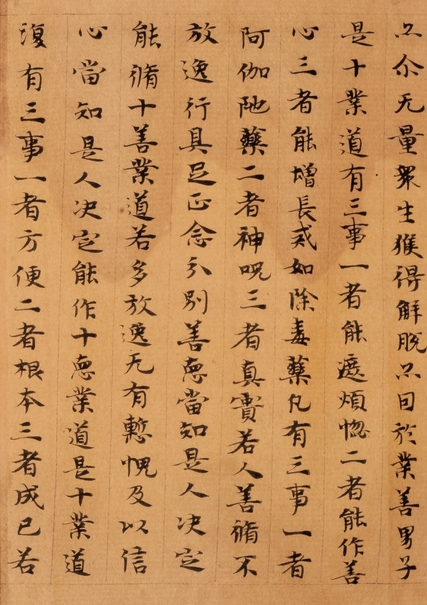 亦尒无量衆生獲得解脫亦因於業善男子
是十業道有三事一者能遮煩惱二者能作善
心三者能增長戒如除毒藥凡有三事一者
阿伽陁藥二者神呪三者真實若人善脩不
放逸行具足正念分別善惡當知是人决定
能脩十善業道若多放逸无有慙愧及以信
心當知是人决定能作十惡業道是十業道
復有三事一者方便二者根本三者成已若